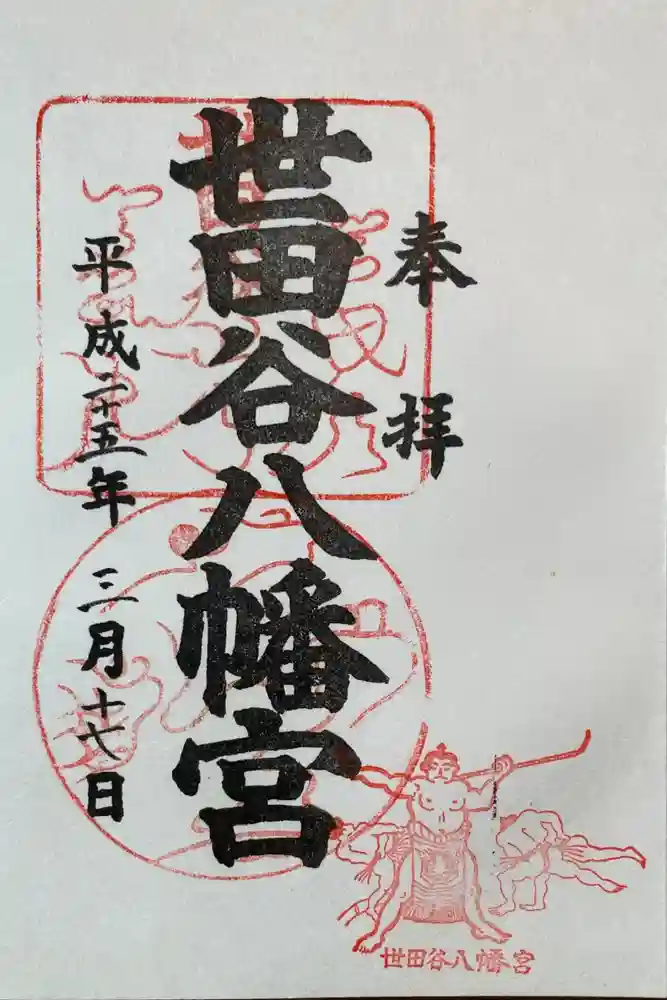 奉拝
世田谷八幡宮
平成二十五年三月十七日
世田谷八幡宮